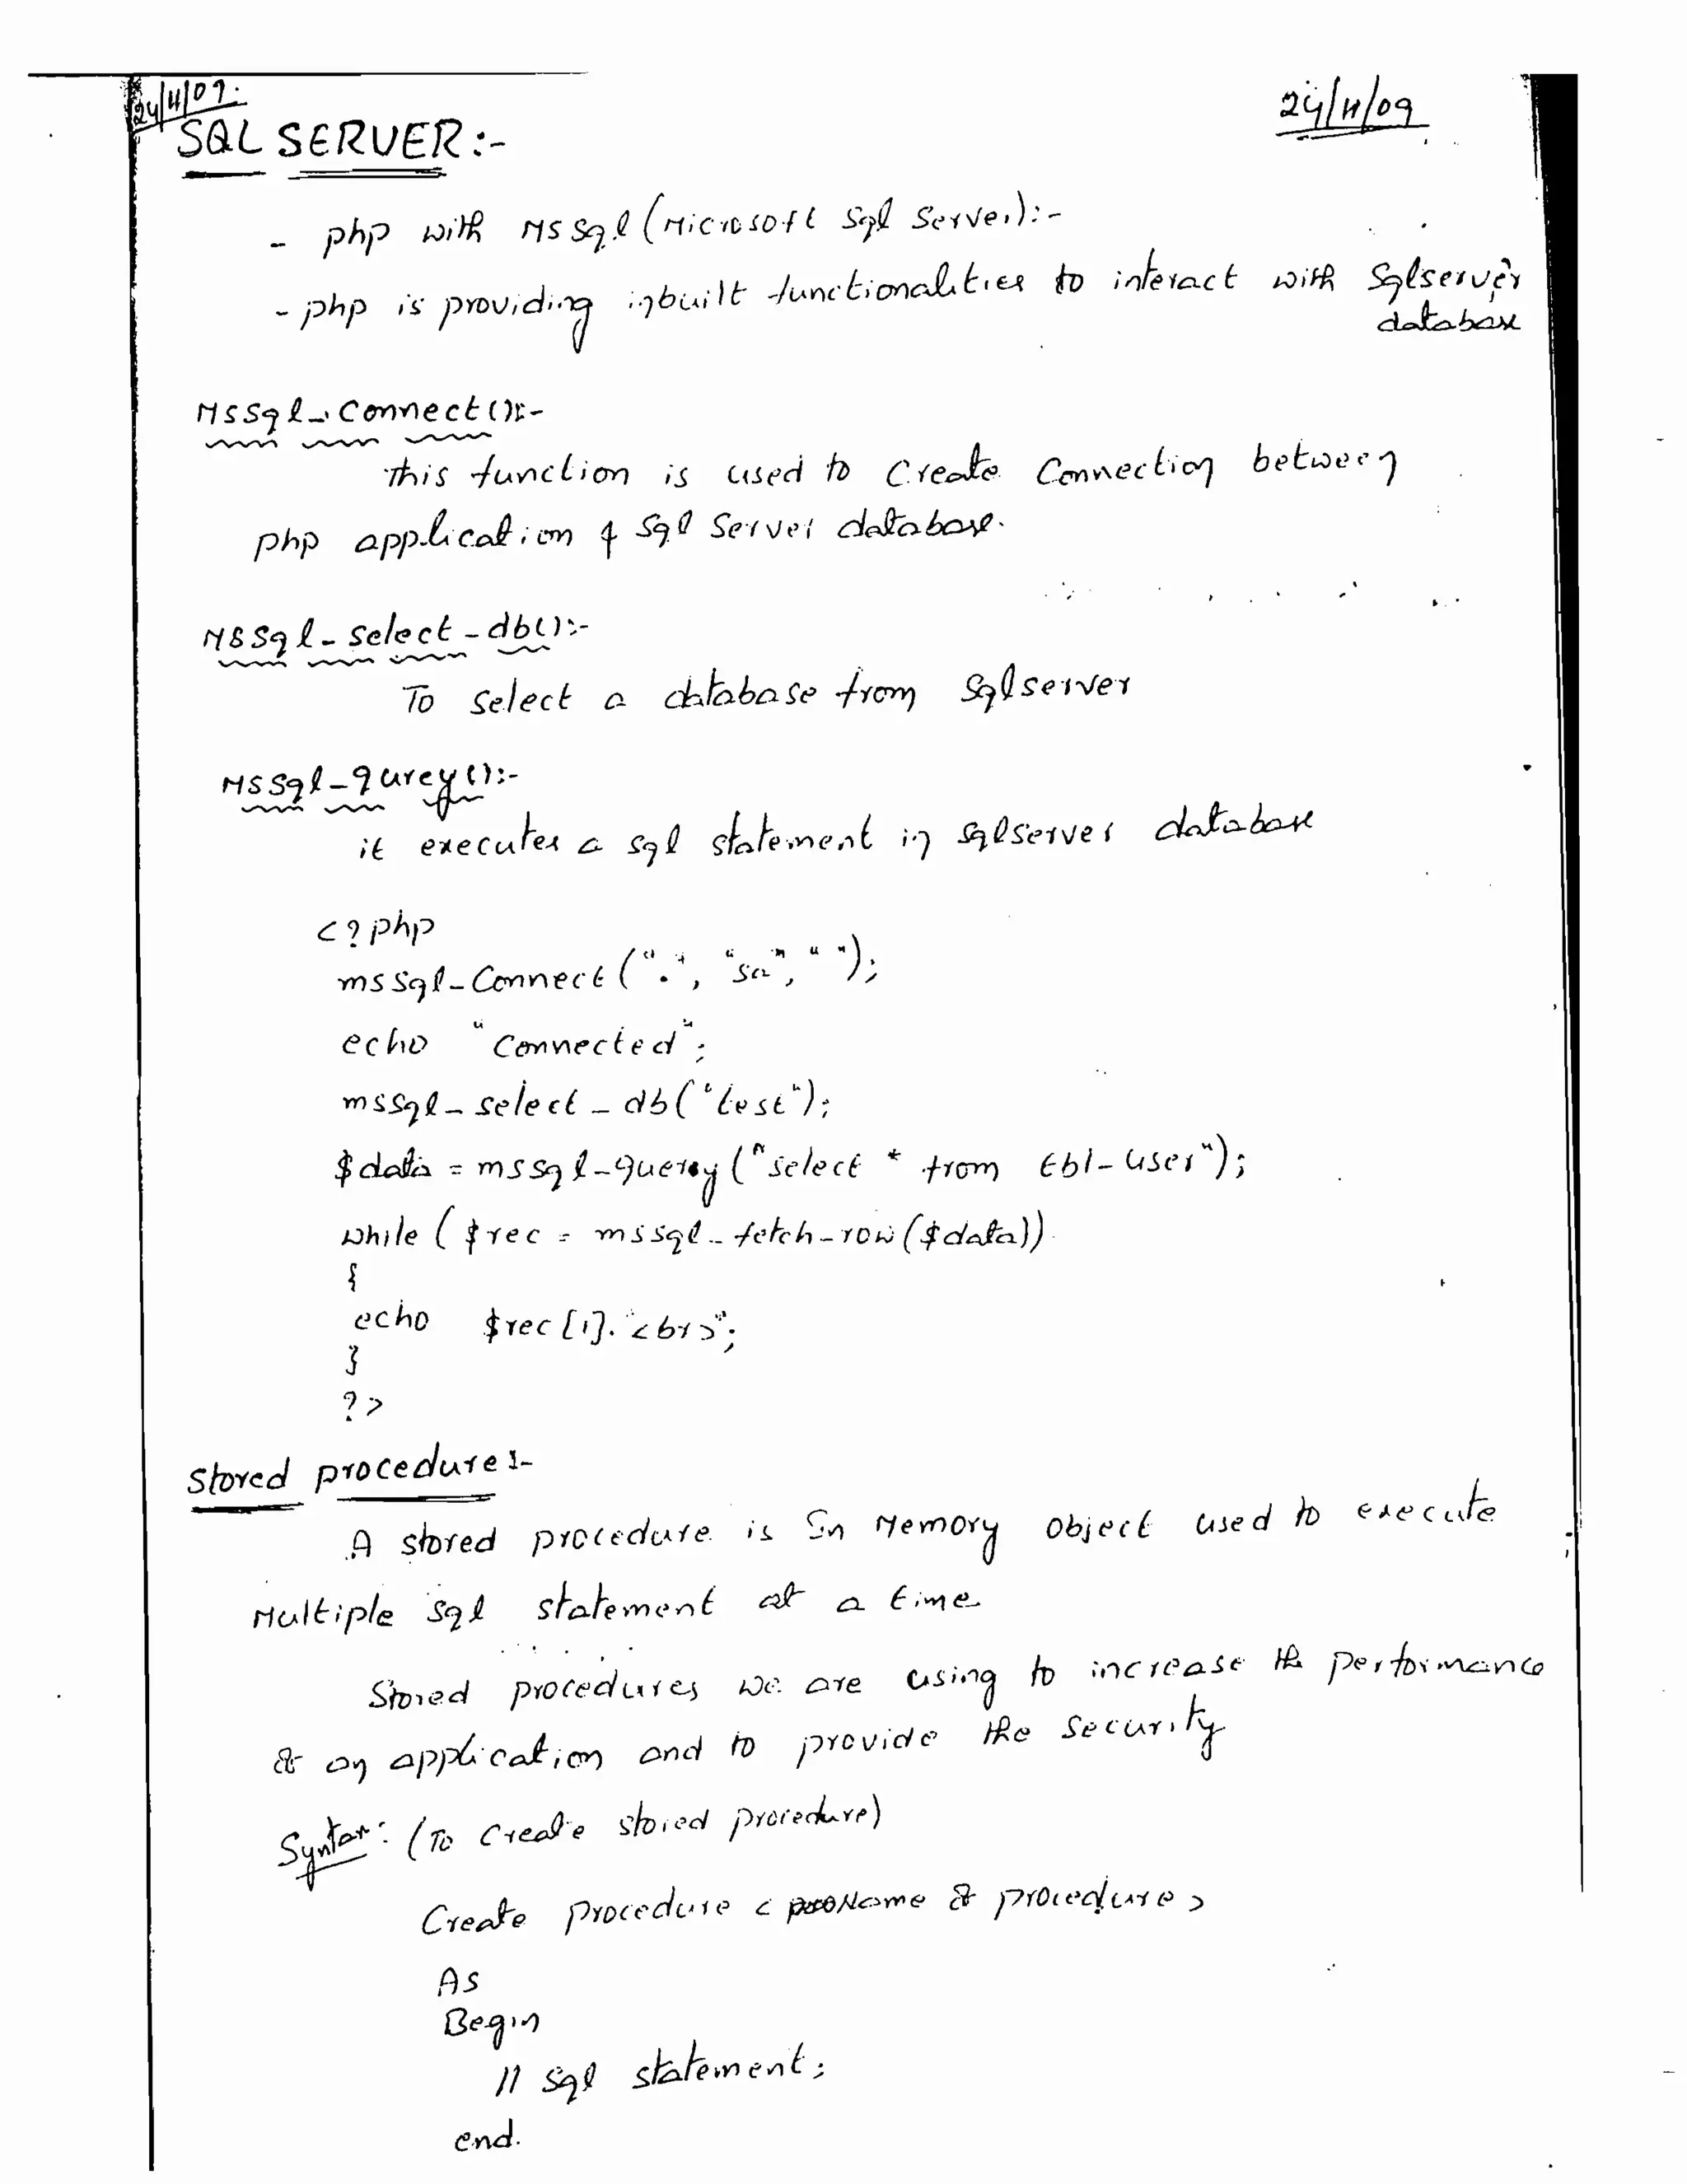 24/11/09.
24/11/09
SQL SERVER:-
- php with MSSql (Microsoft Sql Server):-
- php is providing inbuilt functionalities to interact with Sqlserver
database
MSSql_Connect():-
This function is used to Create Connection between
php application & Sql Server database.
MSSql_select_db():-
To select a database from Sqlserver
MSSql_qurey():-
it executes a sql statement in sqlserver database
<?php
mssql_Connect(".", "sa", " ");
echo "Connected";
mssql_select_db("test");
$data = mssql_query("select * from tbl_user");
while ($rec = mssql_fetch_row($data))
{
echo $rec[1]."<br>";
}
?>
Stored procedure:-
A stored procedure is In Memory object used to execute
Multiple sql statement at a time
Stored procedures we are using to increase the performance
of an application and to provide the security
Syntax: (To Create stored procedure)
Create procedure < Name of procedure>
As
Begin
// sql statement;
end.